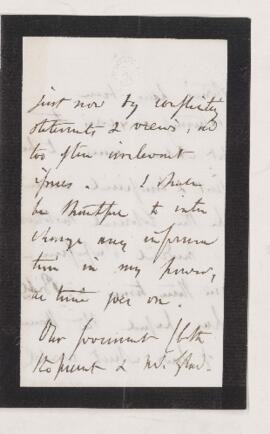 just now by conflicting
statements & views, and
too often irrelevant
issues. I shall
be thankful to inter
change any informa
tion in my power,
as time goes on.
Our Government (both
& Mr. Glad-